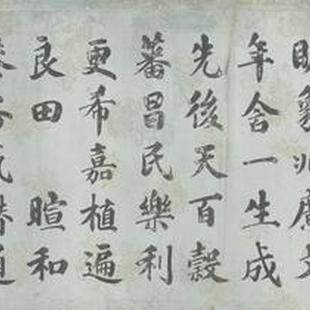 兆廣
年舍一生成
先後天百穀
蕃昌民樂利
更希嘉植遍
良田 暄和